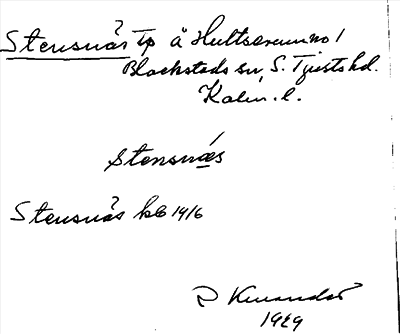 Stensnäs Tp å Hultserum no 1
Blackstads sn, S. Tjusts hd.
Kalm. l.
Stensnæs
Stensnäs kb 1916
1929